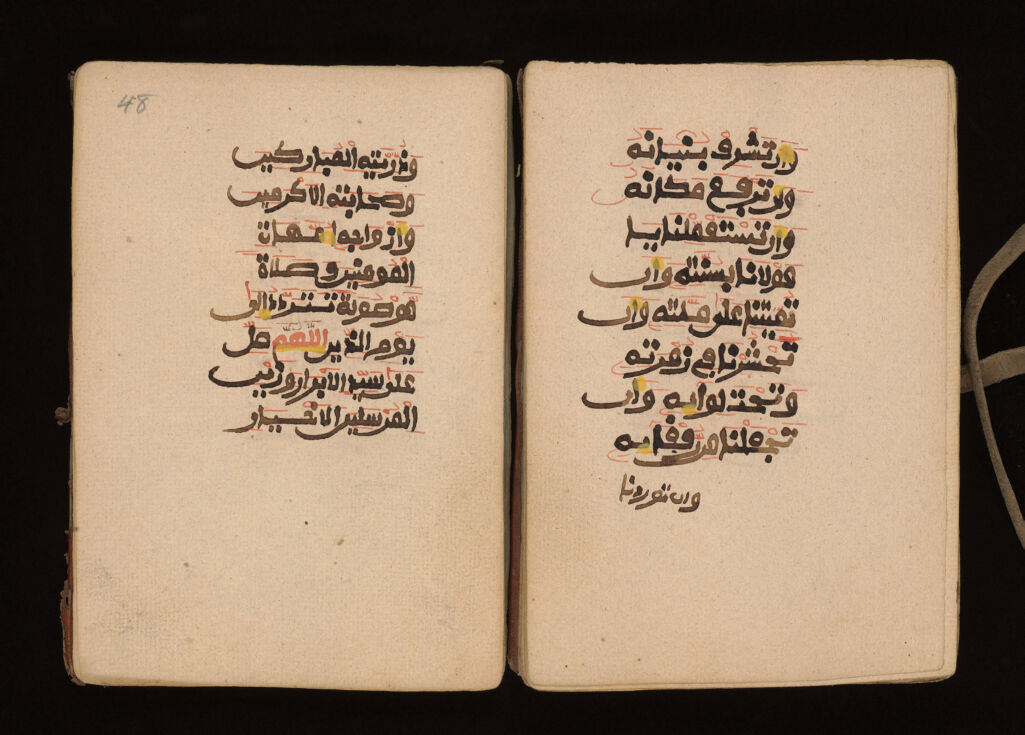 وان تشرف بنيانه
وان ترفع مكانه
وان تستعملنا يا
مولانا بسنته وان
تميتنا على ملته وان
تحشرنا في زمرته
وتحت لوايه وان
تجعلنا من رفقايه
وان توردنا
48
وذريته المباركين
وصحابته الاكرمين
وازواجه امهات
المومنين وصلاة
موصولة تتردد الى
يوم الدين اللهم صل
على سيد الابرار وزين
المرسلين الاخيار